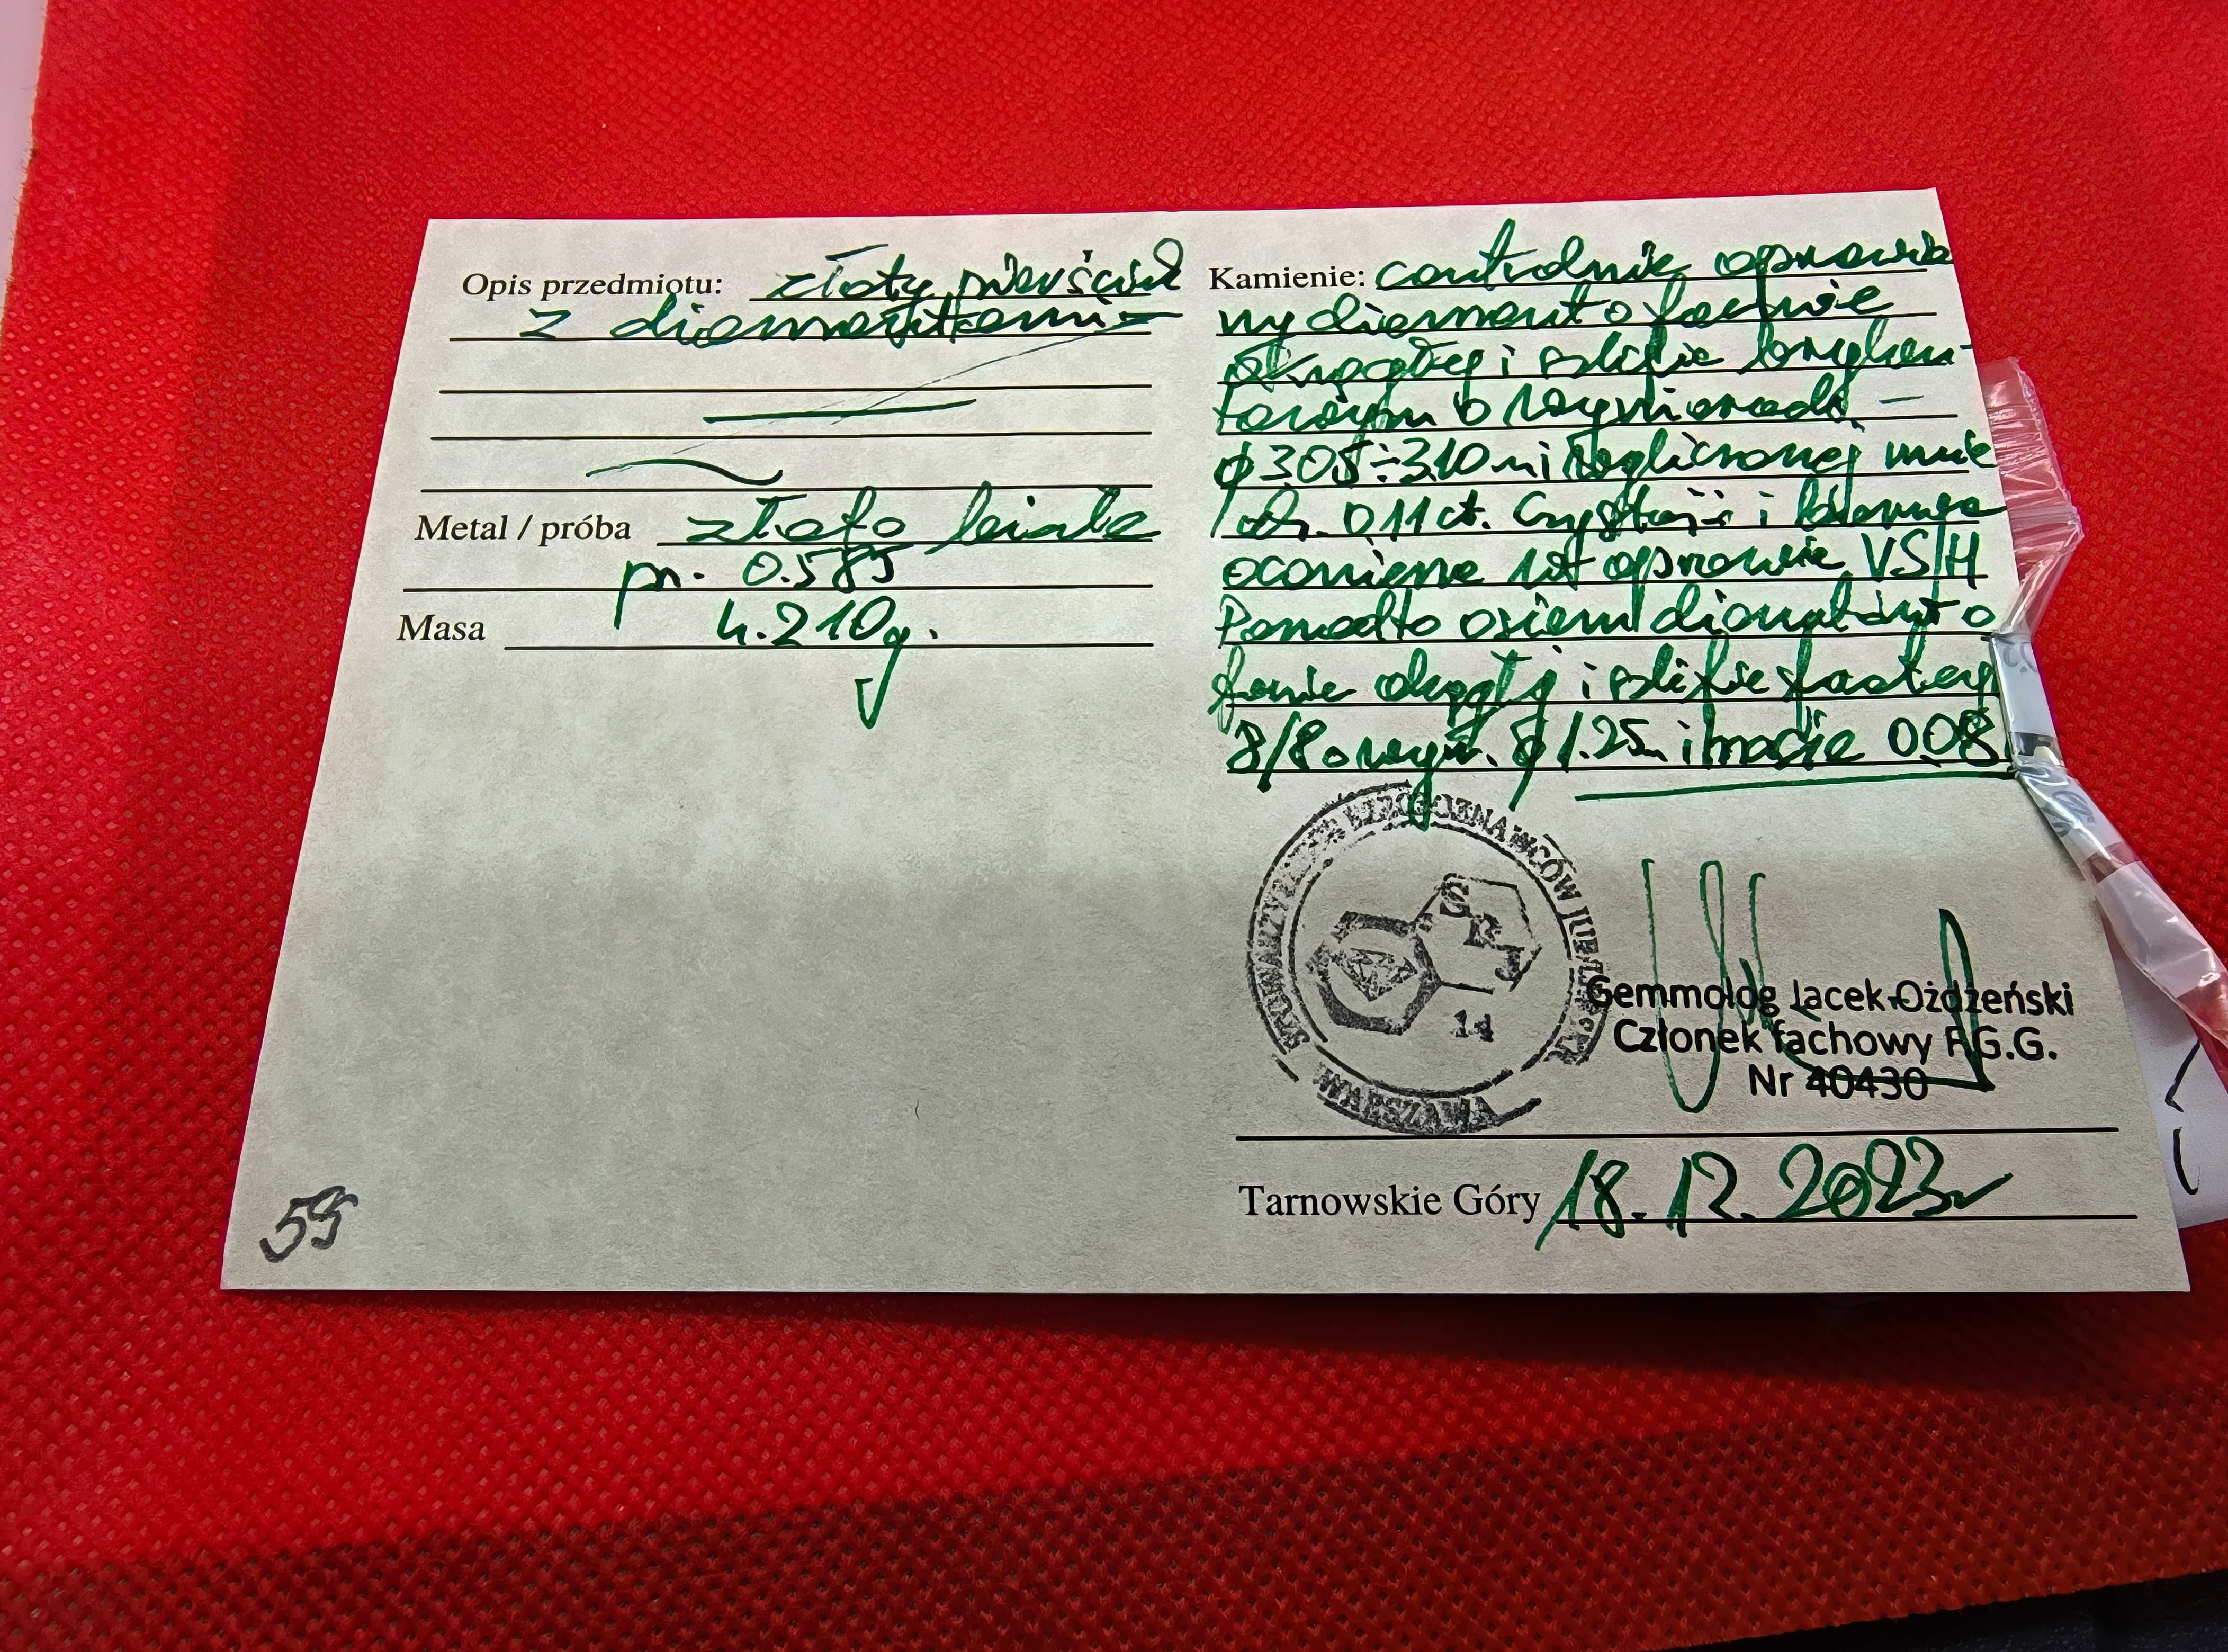 Opis przedmiotu: złoty pierścień
z diamentami
Metal / próba złoto białe
pr. 0.585
Masa 4.210g.
55
Kamienie: centralnie oprawio
ny diament o formie
okrągłej i szlifie brylan-
towym o wymiarach
ϕ 3.05÷3.10 m i masie
0.11 ct. Czystość i barwa
ocenione w oprawie VS/H
Ponadto osiem diamentów o
formie okrągłej i szlifie
8/8 o wym. ϕ 1.25m i masie 0.08
STOWARZYSZENIE RZECZOZNAWCÓW JUBILERSKICH
SRJ
14
WARSZAWA
Gemmolog Jacek Ożdżeński
Członek fachowy P.G.G.
Nr 40430
Tarnowskie Góry 18.12.2023